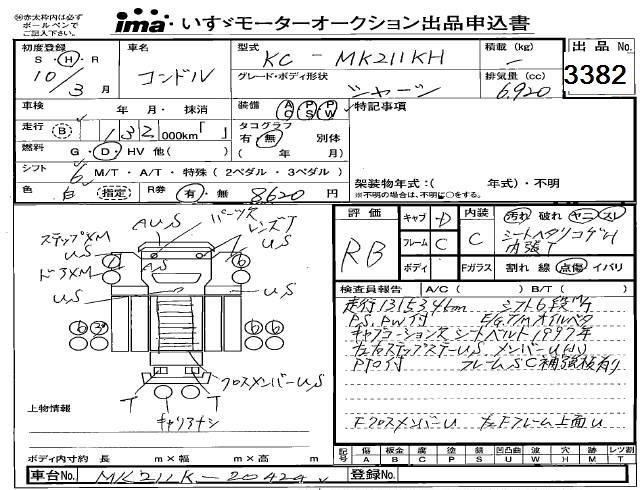 ㊟赤太枠内は必ず
ボールペンで
ご記入下さい。
ima いすゞモーターオークション出品申込書
初度登録 車名 型式 積載(kg) 出品No.
S・H・R 10/3月 コンドル KC-MK211KH - 3382
グレード・ボディ形状 シャーシ 排気量(cc) 6,920
車検 年 月・抹消 装備 AC PS PW 特記事項
走行 (B) 132,000km「 」 タコグラフ 有・無 別体
燃料 G・D・HV 他( ) ( 年 月)
シフト 6 M/T・A/T・特殊(2ペダル・3ペダル)
色 白 (指定) R券 有・無 8620円
架装物年式:( 年式)・不明
※不明の場合は、不明に○をする。
評価 RB キャブ D 内装 C 汚れ 破れ ヤニ スレ
フレーム C シートヘタリコゲU
内張T
ボディ Fガラス 割れ 線 点傷 イバリ
検査員報告 A/C( ) B/T( )
走行131534km シフト6段M/T
P.S, PW付
シートベルト1997年
左右ステップステーU.S メンバーU(小)
PTO付 フレームSC補強板有り
FクロスメンバーU 左Fフレーム上面U
AUS パーツ欠
ステップXM レンズT
US US
ドアXM AS
US US
6 6 6
クロスメンバーUS
T T
キャリアナシ
上物情報
ボディ内寸約 長 m×幅 m×高 m
記号 傷A 板金B 腐C 塗P 錆S 凹凸曲U 波W 穴H 跡M レツ割T
車台No. MK211K-20424 登録No.